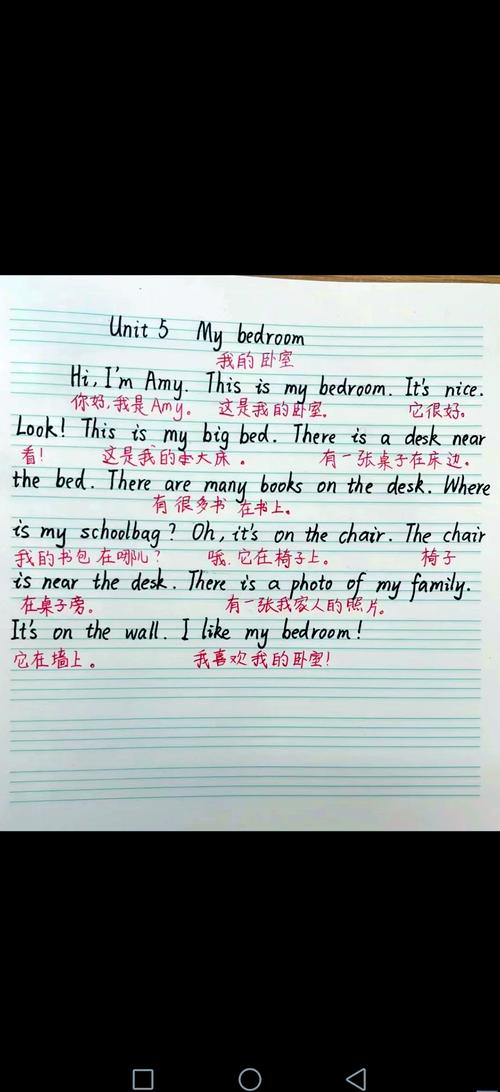 Unit 5 My bedroom
我的卧室
Hi, I'm Amy. This is my bedroom. It's nice.
你好,我是Amy。 这是我的卧室。 它很好。
Look! This is my big bed. There is a desk near
看! 这是我的大床。 有一张桌子在床边。
the bed. There are many books on the desk. Where
有很多书 在书上。
is my schoolbag? Oh, it's on the chair. The chair
我的书包在哪儿? 哦,它在椅子上。 椅子
is near the desk. There is a photo of my family.
在桌子旁。 有一张我家人的照片。
It's on the wall. I like my bedroom!
它在墙上。 我喜欢我的卧室!